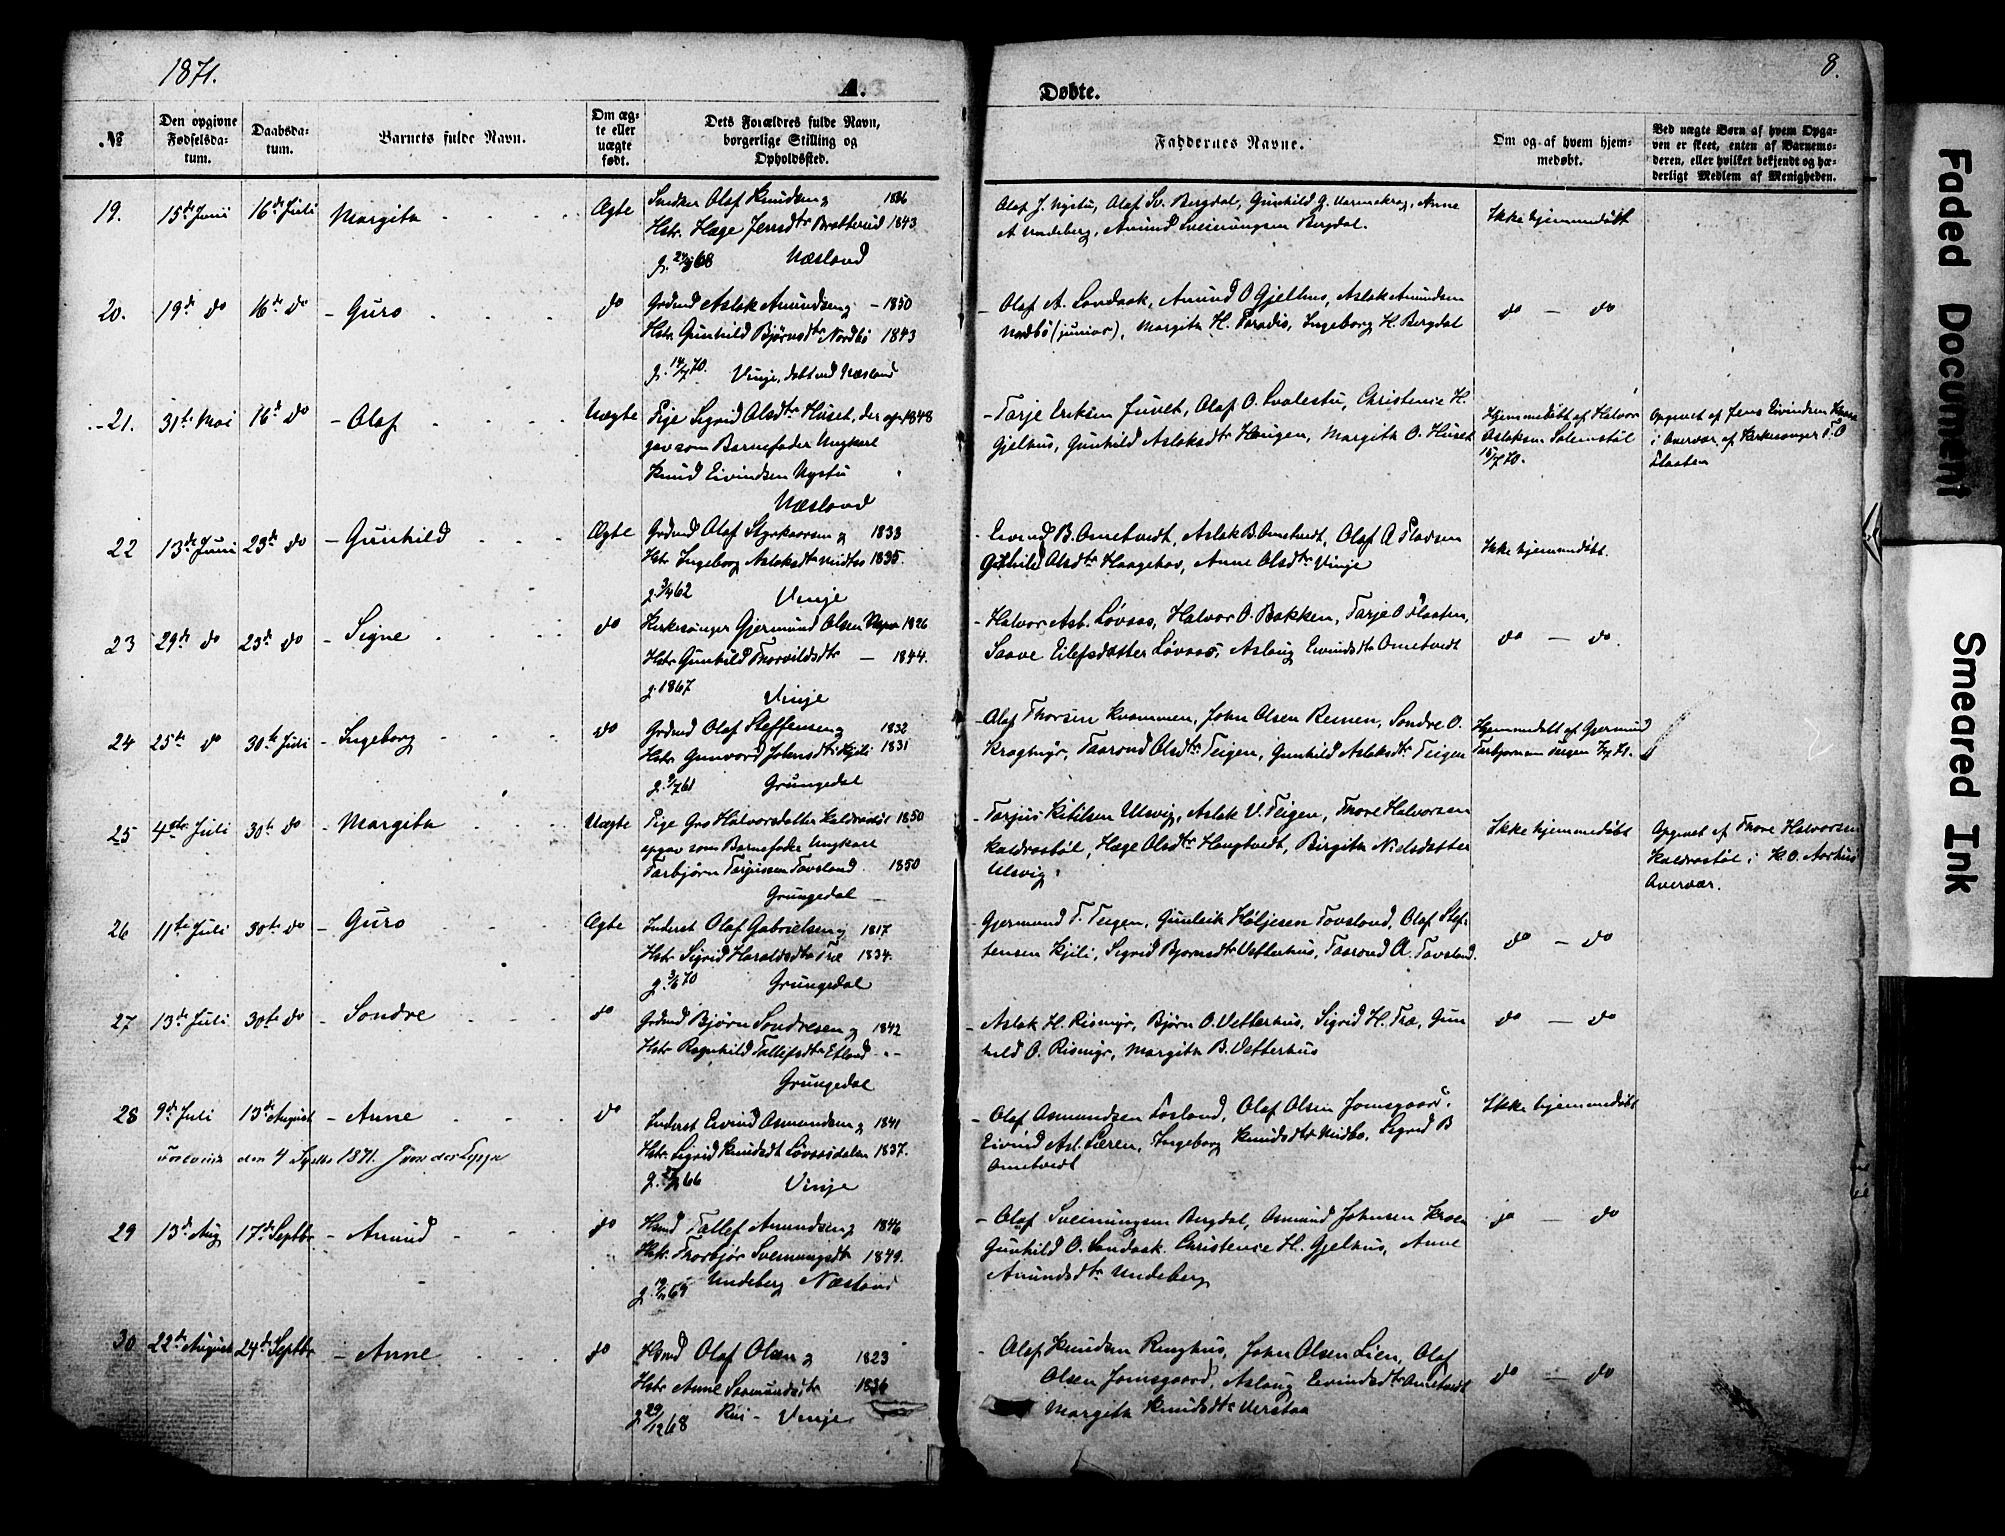 1871.
A.
Døbte.
8.
№
Den opgivne Fødselsdatum.
Daabsdatum.
Barnets fulde Navn.
Om ægte eller uægte født.
Dets Forældres fulde Navn, borgerlige Stilling og Opholdssted.
Faddernes Navne.
Om og af hvem hjemmedøbt.
Ved uægte Børn af hvem Opgaven er skeet, enten af Barnemoderen, eller hvilket bekjendt og hæderligt Medlem af Menigheden.
19. 15de Juni 16de Juli Margita Ægte
Olaf Knudsen og 1836
Hstr. Hæge Jensdtr Bratterud 1843
Næsland
Olaf J. Nystu, Olaf Sv. Bergdal, Gunhild G. Varmekrag, Anne
A Undeberg, Amund Sveinungsen Bergdal.
Ikke hjemmedøbt
20. 19de do 16de do - Guro do
Grdmd Aslak Amundsen og - 1850
Hstr. Gunhild Bjørnsdtr Nordbø 1843
g. 14/7 70. Vinje, døbt ved Næsland
- Olaf A. Londaak, Amund O Gjelhus, Aslak Amundsen
Nordbø (junior), Margita H. Paradis, Ingeborg H. Bergdal
do — do
21. 31te Mai 16de do - Olaf Uægte
Pige Sigrid Olsdtr Huset, der op- 1848
gav som Barnefader Ungkarl
Knud Eivindsen Nystu
Næsland
- Tarje Eriksen Juvet, Olaf O. Svalestu, Christence H.
Gjelhus, Gunhild Aslaksdtr Haugen, Margita O. Huset
Hjemmedøbt af Halvor
Aslaksen
Opgivet af Jens Eivindsen
i Overvær af Kirkesanger T. O
Flaaten
22 13de Juni 23de do - Gunhild Ægte
Grdmd Olaf Styrkaarsen og 1833
Hstr Ingeborg Aslaksdtr Midtbø 1835.
Vinje
- Eivind B. Ometvedt, Aslak B. Ometvedt, Olaf A
Gunhild Olsdtr Haagehov, Anne Olsdtr Vinje
Ikke hjemmedøbt.
23 29de do 23de do - Signe do
Kirkesanger Gjermund Olsen 1826
Hstr Gunhild Thorvildsdtr — 1844.
g. 1867 Vinje
- Halvor Asb. Løvaas, Halvor O. Bakken, Tarje O Flaaten,
Saave Eilefsdatter Løvaas, Aslaug Eivindsdtr Ometvedt
do — do.
24 25te do 30te Juli - Ingeborg do
Grdmd Olaf Steffensen og 1832
Hstr Gunvord Johnsdtr Kjili 1831
g. 9/7 61 Grungedal
- Olaf Thorsen Kvammen, John Olsen Reinen, Sondre O.
Kragmyr, Taarond Olsdtr Teigen, Gunhild Aslaksdtr Teigen
Hjemmedøbt af Gjermund
Tarbjørnsen Teigen
25 4de Juli 30te do - Margita Uægte
Pige Gro Halvorsdatter Kaldrostøl 1850
opgav som Barnefader Ungkarl
Tarbjørn Tarjeisen Tovsland. 1850
Grungedal —
- Tarjei Ketilsen Ulsvig, Aslak V. Teigen, Thore Halvorsen
Kaldrostøl, Hæge Olsdtr Haugtvedt, Birgita Nielsdatter
Ulsvig.
Ikke hjemmedøbt
Opgivet af Thore Halvorsen
Kaldrostøl i K. O. Aarhus
Overvær.
26 11te Juli 30te do - Guro Ægte
Inderst Olaf Gabrielsen og 1817
Hstr Sigrid Haraldsdtr Træ 1834.
g. 3/6 70 Grungedal
- Gjermund T. Teigen, Gunleik Høljesen Tovsland, Olaf Stef-
fensen Kjili, Sigrid Bjørnsdtr Vetterhus, Taarond A. Tovsland.
do — do
27 13de Juli 30te do - Sondre do
Grdmd Bjørn Sondresen og 1842
Hstr Ragnhild Tallefsdtr Etland
Grungedal
- Aslak H. Rismyr, Bjørn O. Vetterhus, Sigrid H. Træ, Gun
hild O. Rismyr, Margita B. Vetterhus
do — do
28 9de Juli 13de August - Anne do
den 4 1871.
Inderst Eivind Osmundsen og 1841
Hstr. Sigrid Knudsdt Løvaasdalen 1837.
Vinje
- Olaf Osmundsen Fosland, Olaf Olsen Jamsgaard,
Eivind Asl. Særen, Ingeborg Knudsdtr Midbø, Sigrid B
Ometvedt
Ikke hjemmedøbt
29 13de Aug 17de Septbr - Amund do
Hsmd Tallef Amundsen og 1846
Hstr. Thorbjør Sveinungsdtr 1849.
Undeberg Næsland
- Olaf Sveinungsen Bergdal, Osmund Johnsen
Gunhild O. Londaak. Christence H. Gjelhus, Anne
Amundsdtr Undeberg
do — do
30 22de August 24de Septbr - Anne do
Hsmd Olaf Olsen og 1823
Hstr Anne Saamundsdtr 1836
g 29/12 68 Rui - Vinje
- Olaf Knudsen Ringhus, John Olsen Lien, Olaf
Olsen Jamsgaard, Aslaug Eivindsdtr Ometvedt
Margita Knudsdtr Verstaa
do — do
Faded Document
Smeared Ink